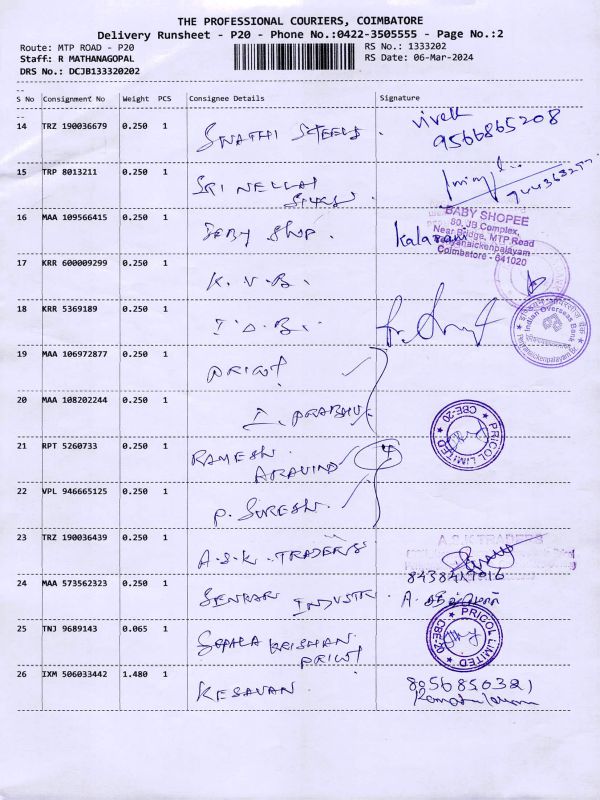 THE PROFESSIONAL COURIERS, COIMBATORE
Delivery Runsheet - P20 - Phone No.:0422-3505555 - Page No.:2
Route: MTP ROAD - P20
RS No.: 1333202
Staff: R MATHANAGOPAL
RS Date: 06-Mar-2024
DRS No.: DCJB133320202
S No Consignment No Weight PCS Consignee Details Signature
14 TRZ 190036679 0.250 1 SWATHI STEELS. Vivek
9566865208
15 TRP 8013211 0.250 1 SRI NELLAI
SILKS
16 MAA 109566415 0.250 1 BABY SHOP. Kalarani
BABY SHOPEE
80, JB Complex,
Near Bridge, MTP Road
Periyanaickenpalayam
Coimbatore - 641020
17 KRR 600009299 0.250 1 K. V. B.
18 KRR 5369189 0.250 1 I. O. B.
Indian Overseas Bank
19 MAA 106972877 0.250 1 PRICOL
20 MAA 108202244 0.250 1 I. PRABHU
PRICOL LIMITED
CBE-20
21 RPT 5260733 0.250 1 RAMESH 4
ARAVIND
22 VPL 946665125 0.250 1 P. SURESH.
23 TRZ 190036439 0.250 1 A.S.K. TRADERS
A.S.K TRADERS
8438417016
24 MAA 573562323 0.250 1 SENKARI INDUSTR. A.
25 TNJ 9689143 0.065 1 GOPALA KRISHNAN
PRICOL
PRICOL LIMITED
CBE-20
26 IXM 506033442 1.480 1 KESAVAN. 8056850321